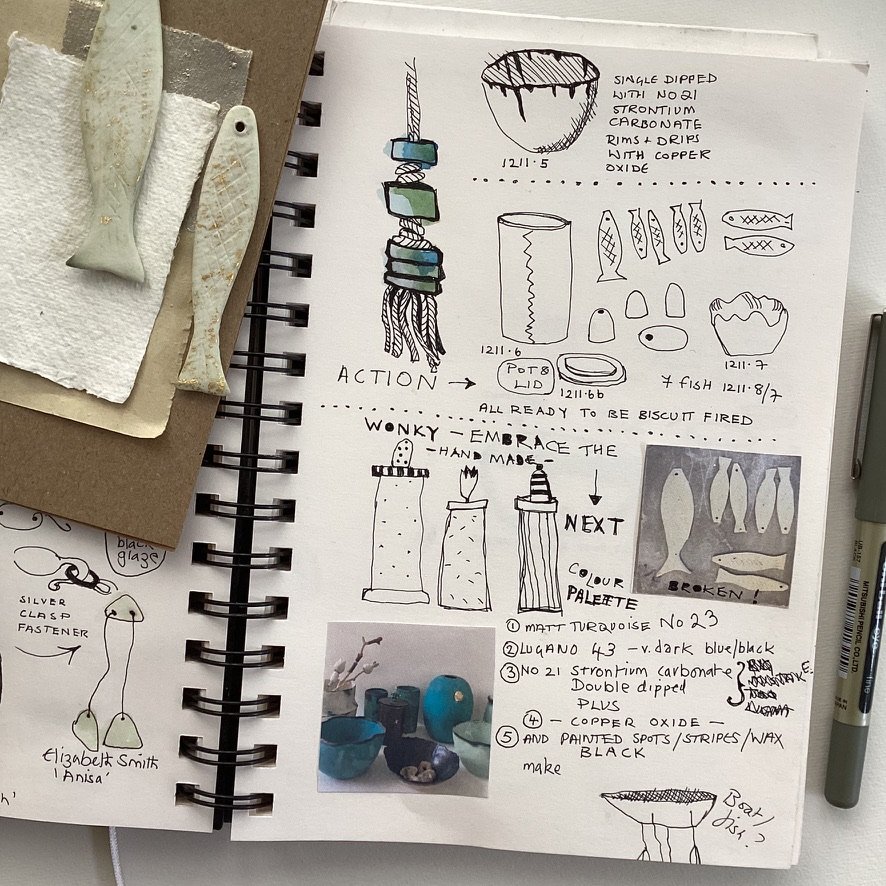 SINGLE DIPPED
WITH NO 21
STRONTIUM
CARBONATE
RIMS + DRIPS
WITH COPPER
OXIDE
1211.5
1211.6
POT &
LID
1211.6b
1211.7
7 FISH 1211.8/7
ACTION →
ALL READY TO BE BISCUIT FIRED
WONKY - EMBRACE THE
- HAND MADE -
NEXT
COLOUR
PALETTE
BROKEN!
① MATT TURQUOISE NO 23
② LUGANO 43 - v. dark blue/black
③ NO 21 Strontium carbonate
Double dipped
PLUS
④ - COPPER OXIDE -
⑤ AND PAINTED SPOTS/STRIPES/WAX
BLACK
make
Boat/
dish?
black
glaze
SILVER
CLASP
FASTENER
Elizabeth Smith
'Anisa'
MITSUBISHI PENCIL CO
fine